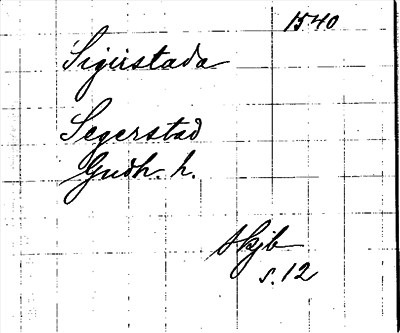 1540
Sigüstada
Segerstad
Gudh. h.
Skjb
s. 12